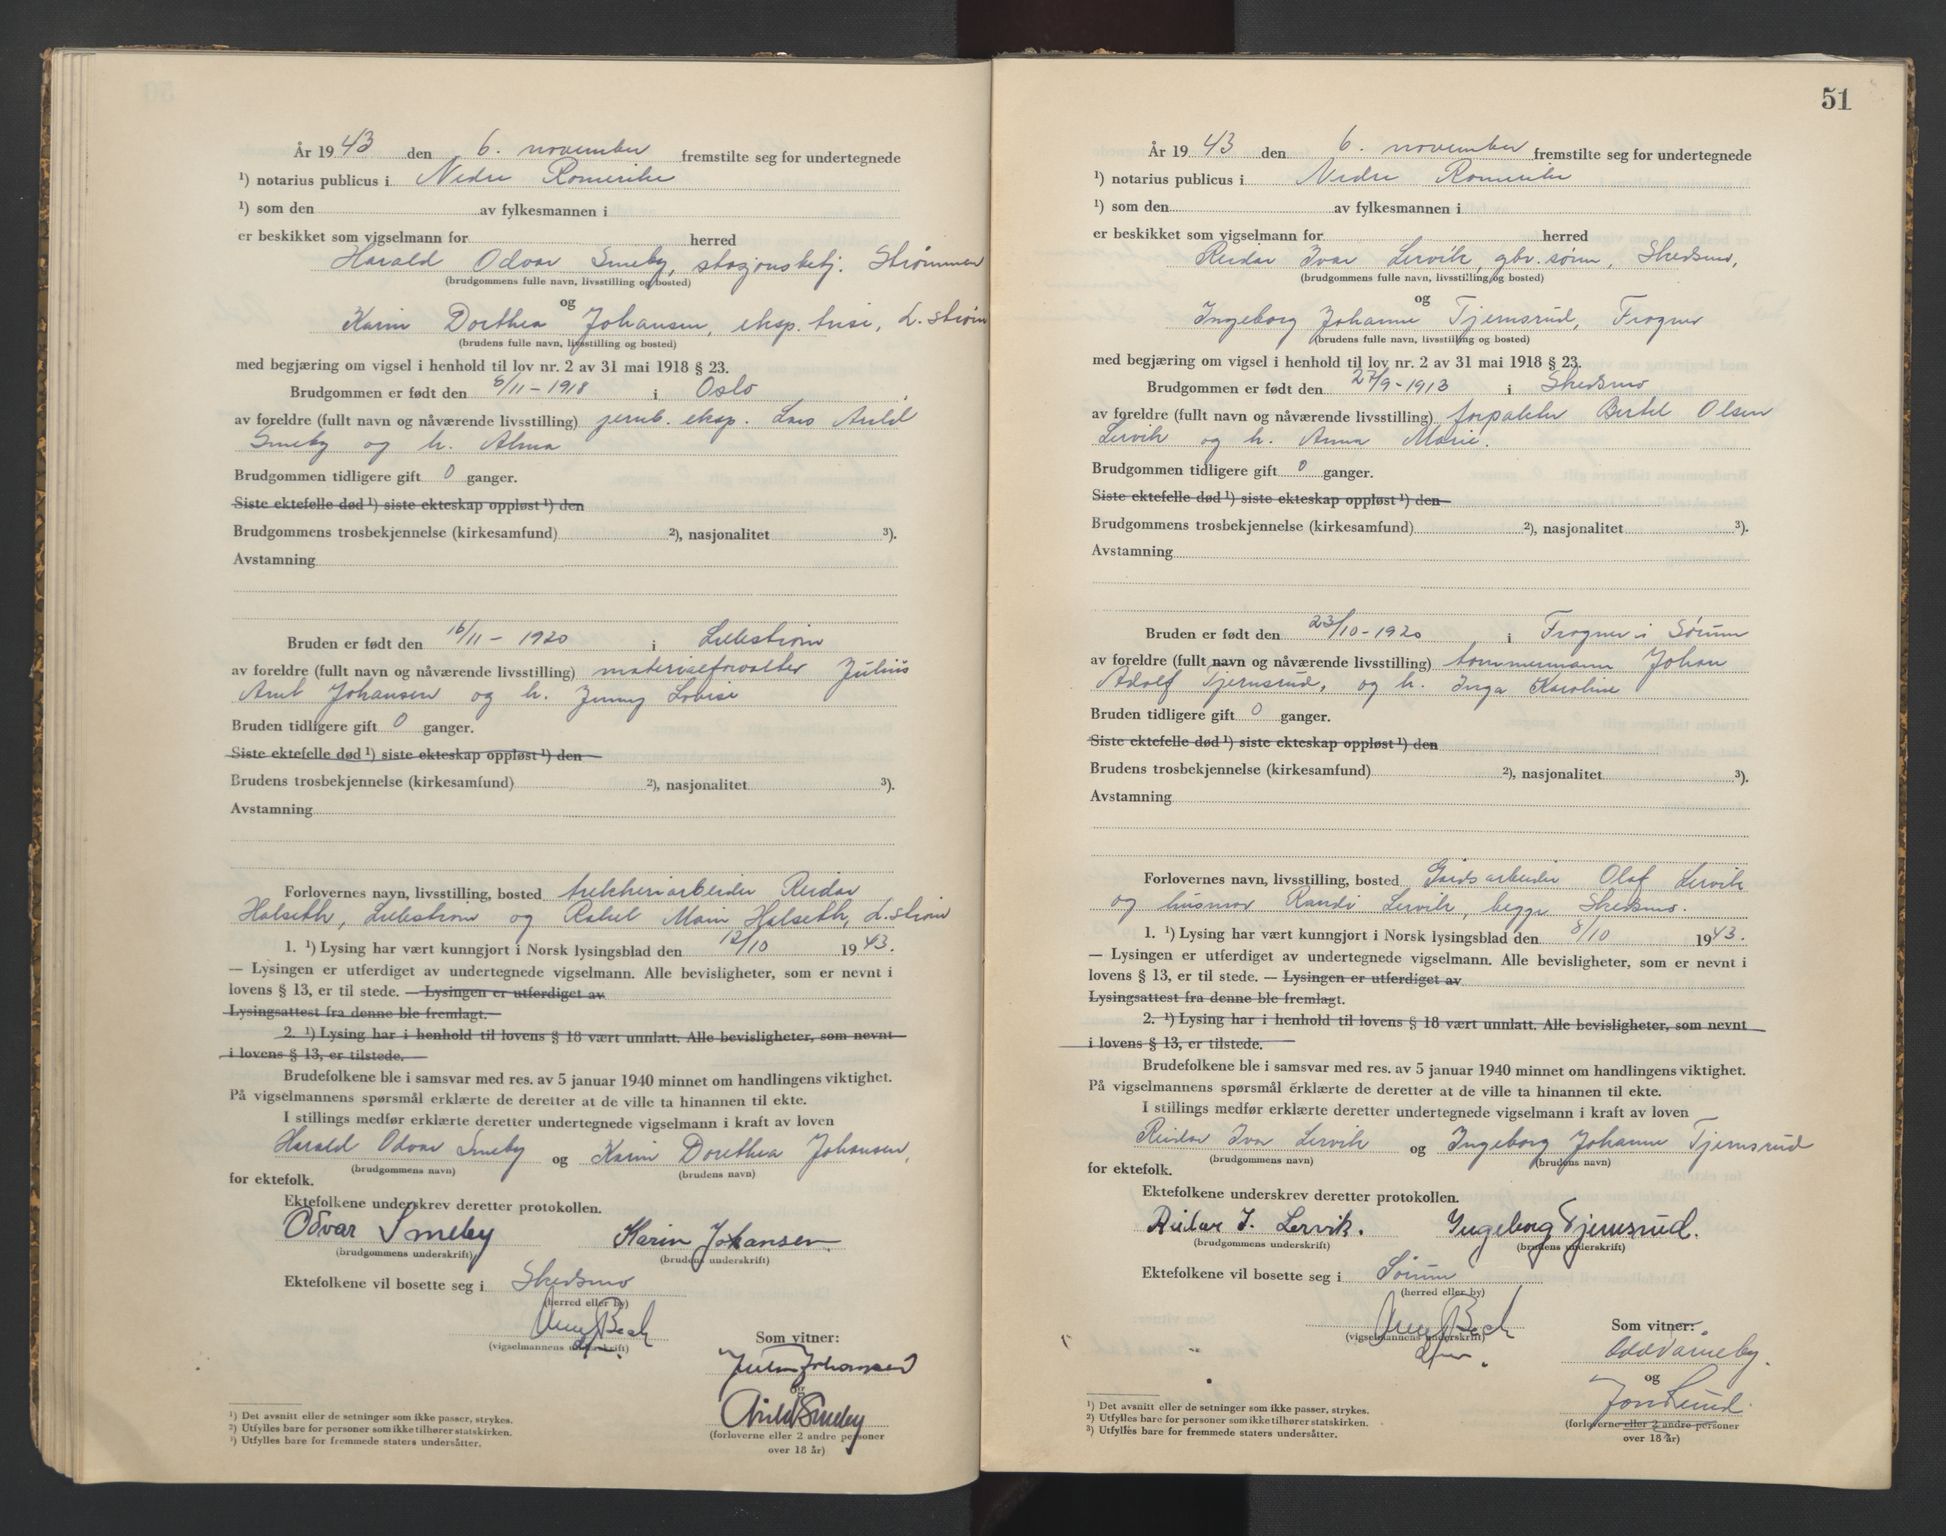 År 1943 den 6. november fremstilte seg for undertegnede
¹) notarius publicus i Nedre Romerike
¹) som den av fylkesmannen i
er beskikket som vigselmann for herred
Harald Odvar Smeby, stasjonsbetj. Strømmen
(brudgommens fulle navn, livsstilling og bosted)
og
Karin Dorthea Johansen, eksp.trise, L.strøm
(brudens fulle navn, livsstilling og bosted)
med begjæring om vigsel i henhold til lov nr. 2 av 31 mai 1918 § 23.
Brudgommen er født den 6/11-1918 i Oslo
av foreldre (fullt navn og nåværende livsstilling) jernb. eksp. Lars Arild
Smeby og h. Alma
Brudgommen tidligere gift 0 ganger.
Siste ektefelle død ¹) siste ekteskap oppløst ¹) den
Brudgommens trosbekjennelse (kirkesamfund) ²), nasjonalitet ³).
Avstamning
Bruden er født den 16/11-1920 i Lillestrøm
av foreldre (fullt navn og nåværende livsstilling) materialforvalter Julius
Arnt Johansen og h. Jenny Lovise
Bruden tidligere gift 0 ganger.
Siste ektefelle død ¹) siste ekteskap oppløst ¹) den
Brudens trosbekjennelse (kirkesamfund) ²), nasjonalitet ³).
Avstamning
Forlovernes navn, livsstilling, bosted trelcheriarbeider Reidar
Halseth, Lillestrøm og Rakel Halseth, L.strøm
1. ¹) Lysing har vært kunngjort i Norsk lysingsblad den 12/10 1943.
— Lysingen er utferdiget av undertegnede vigselmann. Alle bevisligheter, som er nevnt i
lovens § 13, er til stede. — Lysingen er utferdiget av
Lysingsattest fra denne ble fremlagt.
2. ¹) Lysing har i henhold til lovens § 18 vært unnlatt. Alle bevisligheter, som nevnt
i lovens § 13, er tilstede.
Brudefolkene ble i samsvar med res. av 5 januar 1940 minnet om handlingens viktighet.
På vigselmannens spørsmål erklærte de deretter at de ville ta hinannen til ekte.
I stillings medfør erklærte deretter undertegnede vigselmann i kraft av loven
Harald Odvar Smeby og Karin Dorethea Johansen,
(brudgommens navn) (brudens navn)
for ektefolk.
Ektefolkene underskrev deretter protokollen.
Odvar Smeby Karin Johansen.
(brudgommens underskrift) (brudens underskrift)
Ektefolkene vil bosette seg i Skedsmo
(herred eller by)
Bech
(vigselmannens underskrift)
Som vitner:
Julius Johansen
og
Arild Smeby
(forloverne eller 2 andre personer
over 18 år)
¹) Det avsnitt eller de setninger som ikke passer, strykes.
²) Utfylles bare for personer som ikke tilhører statskirken.
³) Utfylles bare for fremmede staters undersåtter.
51
År 1943 den 6. november fremstilte seg for undertegnede
¹) notarius publicus i Nedre Romerike
¹) som den av fylkesmannen i
er beskikket som vigselmann for herred
Reidar Ivar Lervik, gbr. sønn, Skedsmo,
(brudgommens fulle navn, livsstilling og bosted)
og
Ingeborg Johanne Tjernsrud, Frogner
(brudens fulle navn, livsstilling og bosted)
med begjæring om vigsel i henhold til lov nr. 2 av 31 mai 1918 § 23.
Brudgommen er født den 27/9-1913 i Skedsmo
av foreldre (fullt navn og nåværende livsstilling) forpakter Bertel Olsen
Lervik og h. Anna Marie.
Brudgommen tidligere gift 0 ganger.
Siste ektefelle død ¹) siste ekteskap oppløst ¹) den
Brudgommens trosbekjennelse (kirkesamfund) ²), nasjonalitet ³).
Avstamning
Bruden er født den 23/10-1920 i Frogner i Sørum
av foreldre (fullt navn og nåværende livsstilling) tømmermann Johan
Adolf Tjernsrud, og h. Inga Karoline
Bruden tidligere gift 0 ganger.
Siste ektefelle død ¹) siste ekteskap oppløst ¹) den
Brudens trosbekjennelse (kirkesamfund) ²), nasjonalitet ³).
Avstamning
Forlovernes navn, livsstilling, bosted Gårdsarbeider Olaf Lervik
og husmor Randi Lervik, begge Skedsmo.
1. ¹) Lysing har vært kunngjort i Norsk lysingsblad den 8/10 1943.
— Lysingen er utferdiget av undertegnede vigselmann. Alle bevisligheter, som er nevnt i
lovens § 13, er til stede. — Lysingen er utferdiget av
Lysingsattest fra denne ble fremlagt.
2. ¹) Lysing har i henhold til lovens § 18 vært unnlatt. Alle bevisligheter, som nevnt
i lovens § 13, er tilstede.
Brudefolkene ble i samsvar med res. av 5 januar 1940 minnet om handlingens viktighet.
På vigselmannens spørsmål erklærte de deretter at de ville ta hinannen til ekte.
I stillings medfør erklærte deretter undertegnede vigselmann i kraft av loven
Reidar Ivar Lervik og Ingeborg Johanne Tjernsrud
(brudgommens navn) (brudens navn)
for ektefolk.
Ektefolkene underskrev deretter protokollen.
Reidar I. Lervik. Ingeborg Tjernsrud.
(brudgommens underskrift) (brudens underskrift)
Ektefolkene vil bosette seg i Sørum
(herred eller by)
Bech
(vigselmannens underskrift)
Som vitner:
og
Jon Lund
(forloverne eller 2 andre personer
over 18 år)
¹) Det avsnitt eller de setninger som ikke passer, strykes.
²) Utfylles bare for personer som ikke tilhører statskirken.
³) Utfylles bare for fremmede staters undersåtter.